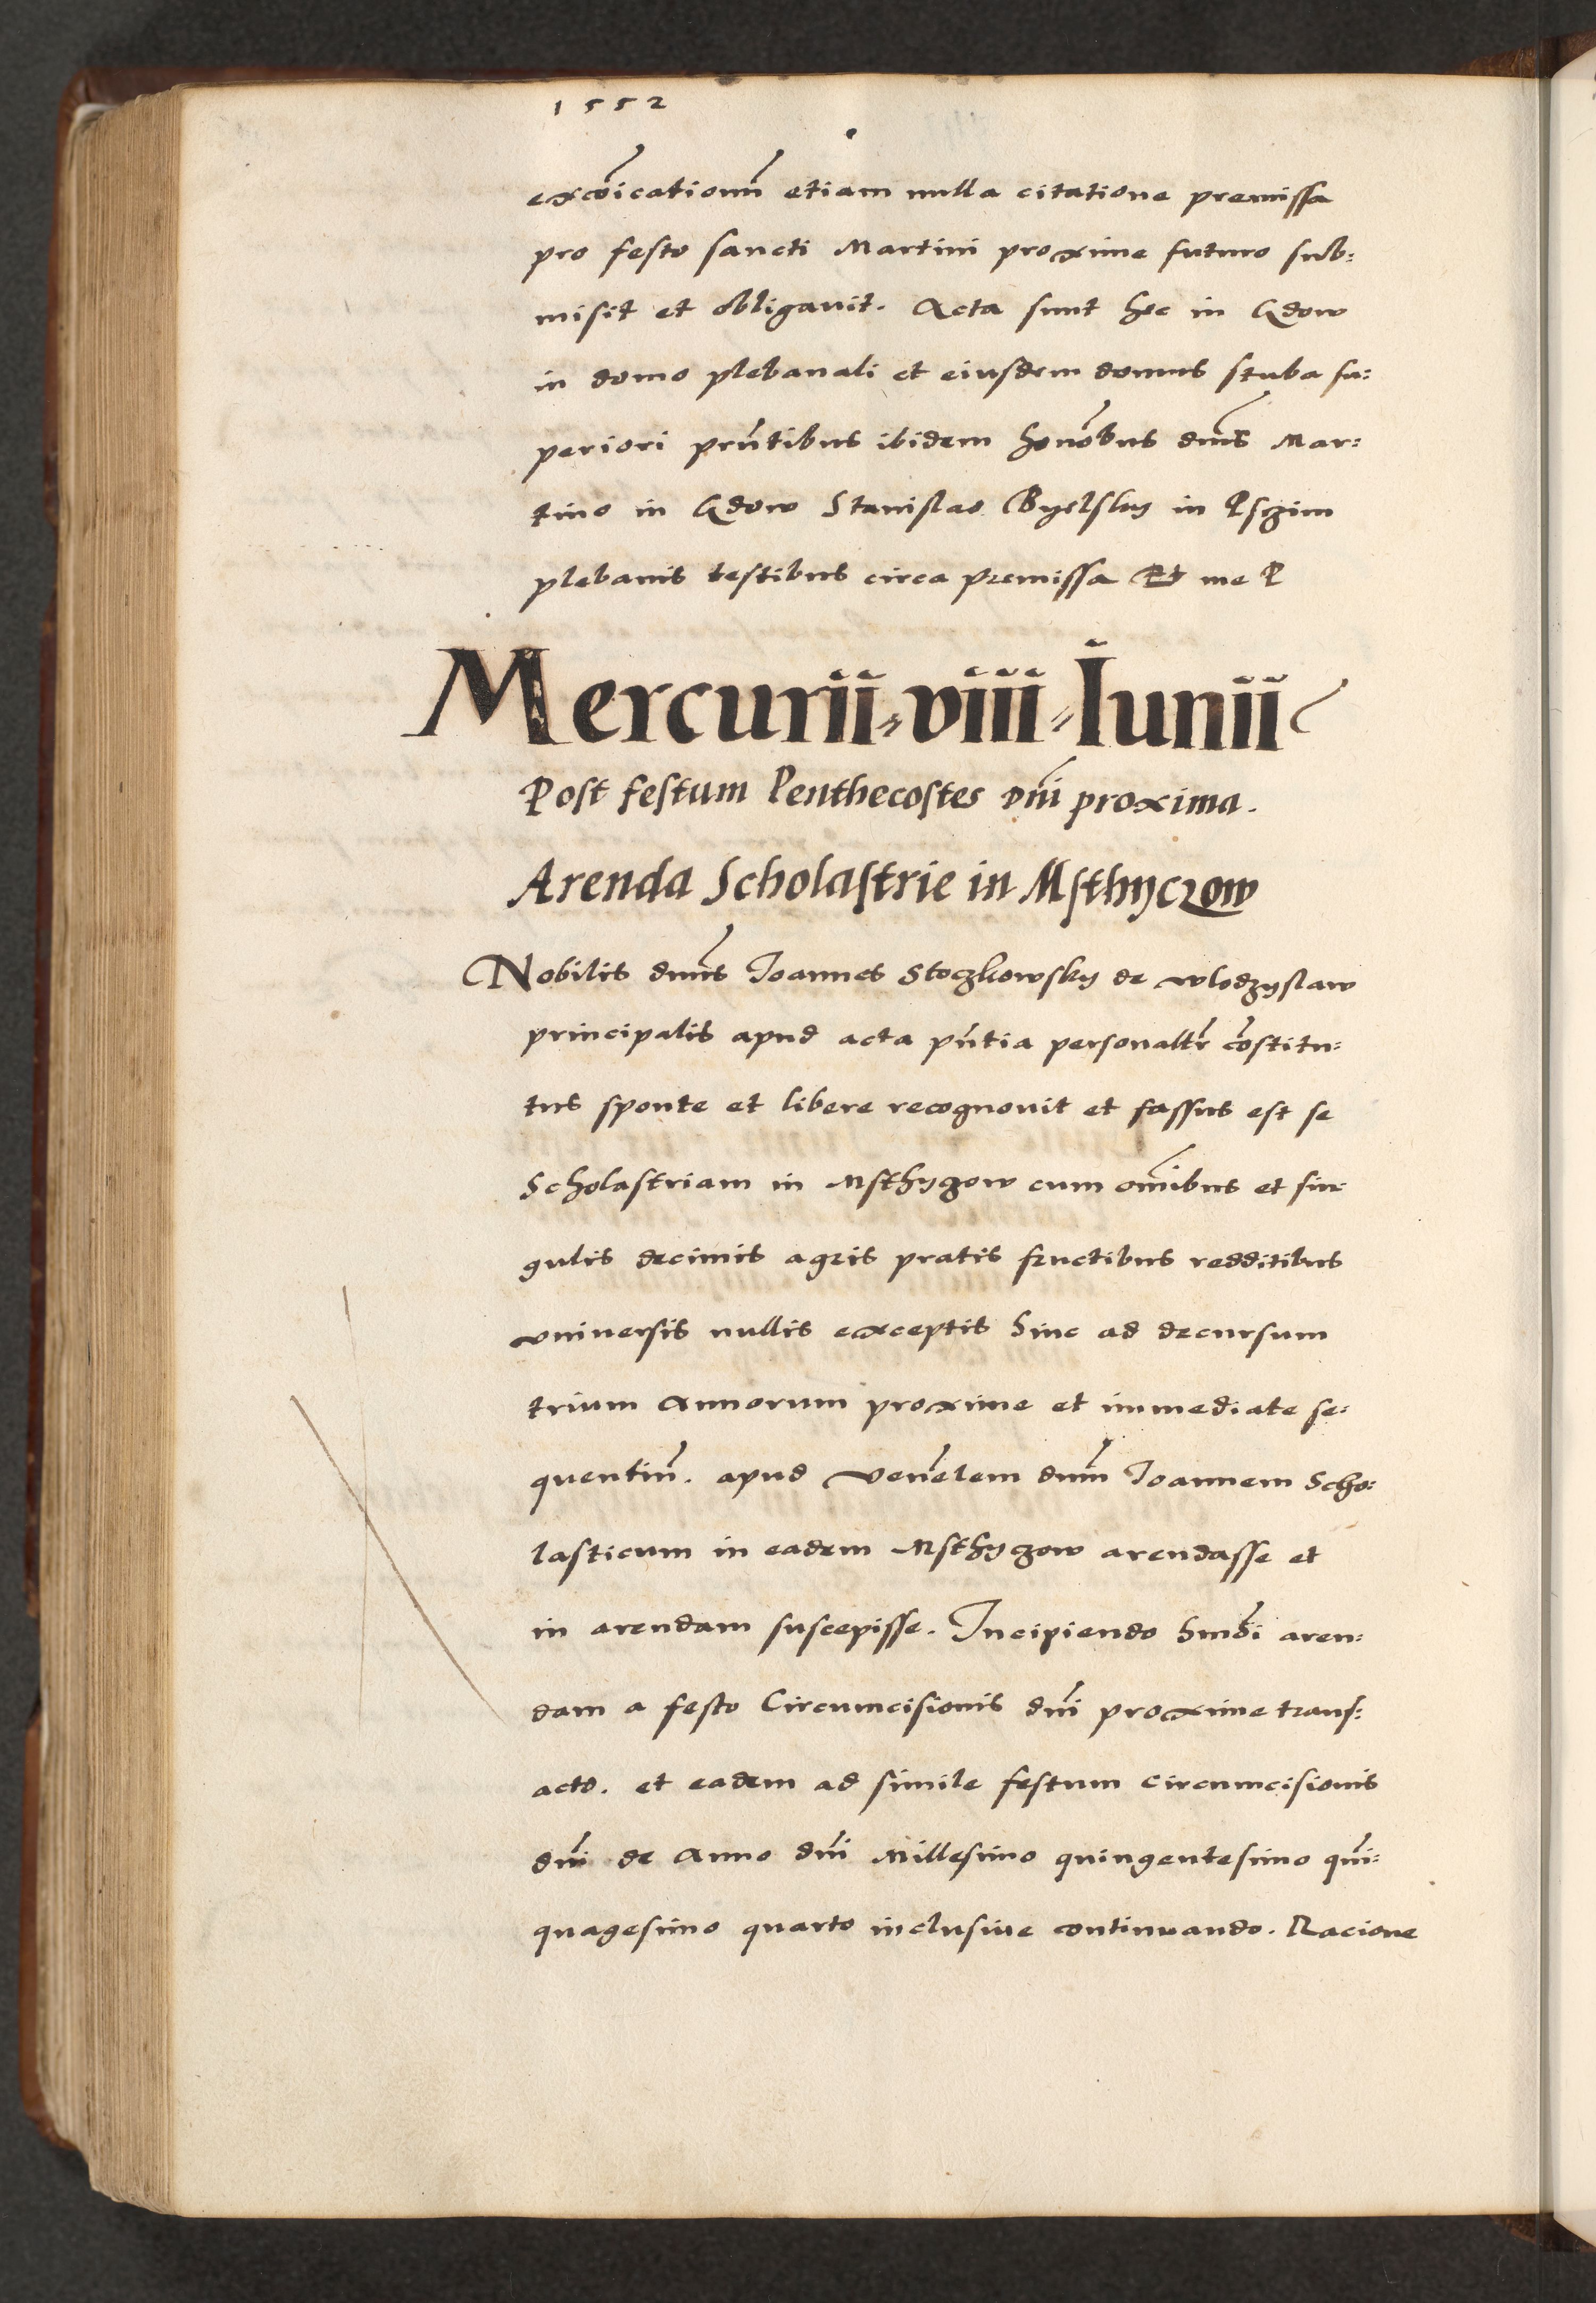 1552
excõicationũ etiam nulla citatione premissa
pro festo sancti Martini proxime futuro sub:
misit et obligauit. Acta sunt hec in Gdow
in domo plebanali et eiusdem domus stuba su:
periori pñtibus ibidem honõbus dñis Mar:
tino in Gdow Stanislao Byelsky in Psczim
plebanis testibus circa premissa Et me P
Mercurii viii Iunii
Post festum Penthecostes dñi proxima.
Arenda Scholastrie in Msthyczow
Nobilis dñus Joannes Stoczkowsky de Wlodzyslaw
principalis apud acta pñtia personaltr̃ cõstitu:
tus sponte et libere recognouit et fassus est se
Scholastriam in Msthyczow cum omĩbus et sin:
gulis decimis agris pratis fructibus redditibus
vniuersis nullis exceptis hinc ad decursum
trium Annorum proxime et immediate se:
quentiũ. apud veñelem dñum Joannem Scho:
lasticum in eadem Msthyczow arendasse et
in arendam suscepisse. Incipiendo hm̃òi aren:
dam a festo Circumcisionis dñi proxime trans:
acto. et eadem ad simile festum circumcisionis
dñi de Anno dñi Millesimo quingentesimo qũi:
quagesimo quarto inclusiue continuando. Racione